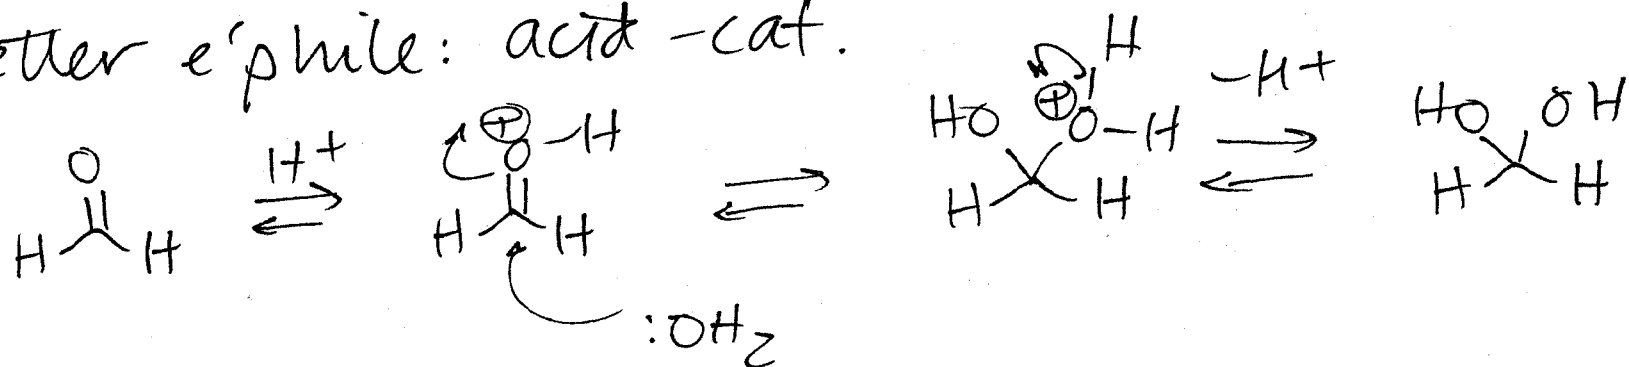 etter e'phile: acid-cat.
H
O H+ ⊕ O-H HO ⊕ O-H -H+ HO OH
H H H H H H H H
:OH2